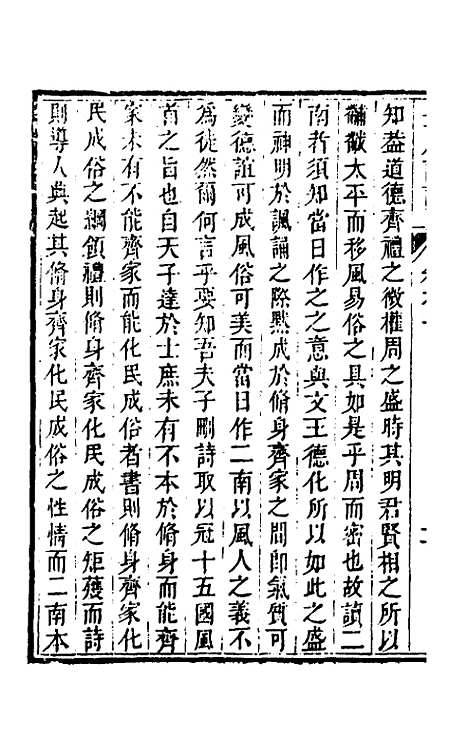 知葢道德齊禮之微權周之盛時其明君賢相之所以
黼黻太平而移風易俗之具如是乎周而密也故讀二
南者須知當日作之之意與文王德化所以如此之盛
而神明於諷誦之際黙成於脩身齊家之間即氣質可
變德誼可成風俗可美而當日作二南以風人之義不
爲徒然爾何言乎要知吾夫子刪詩取以冠十五國風
首之旨也自天子達於士庶未有不本於脩身而能齊
家未有不能齊家而能化民成俗者書則脩身齊家化
民成俗之綱領禮則脩身齊家化民成俗之矩矱而詩
則導人興起其脩身齊家化民成俗之性情而二南本